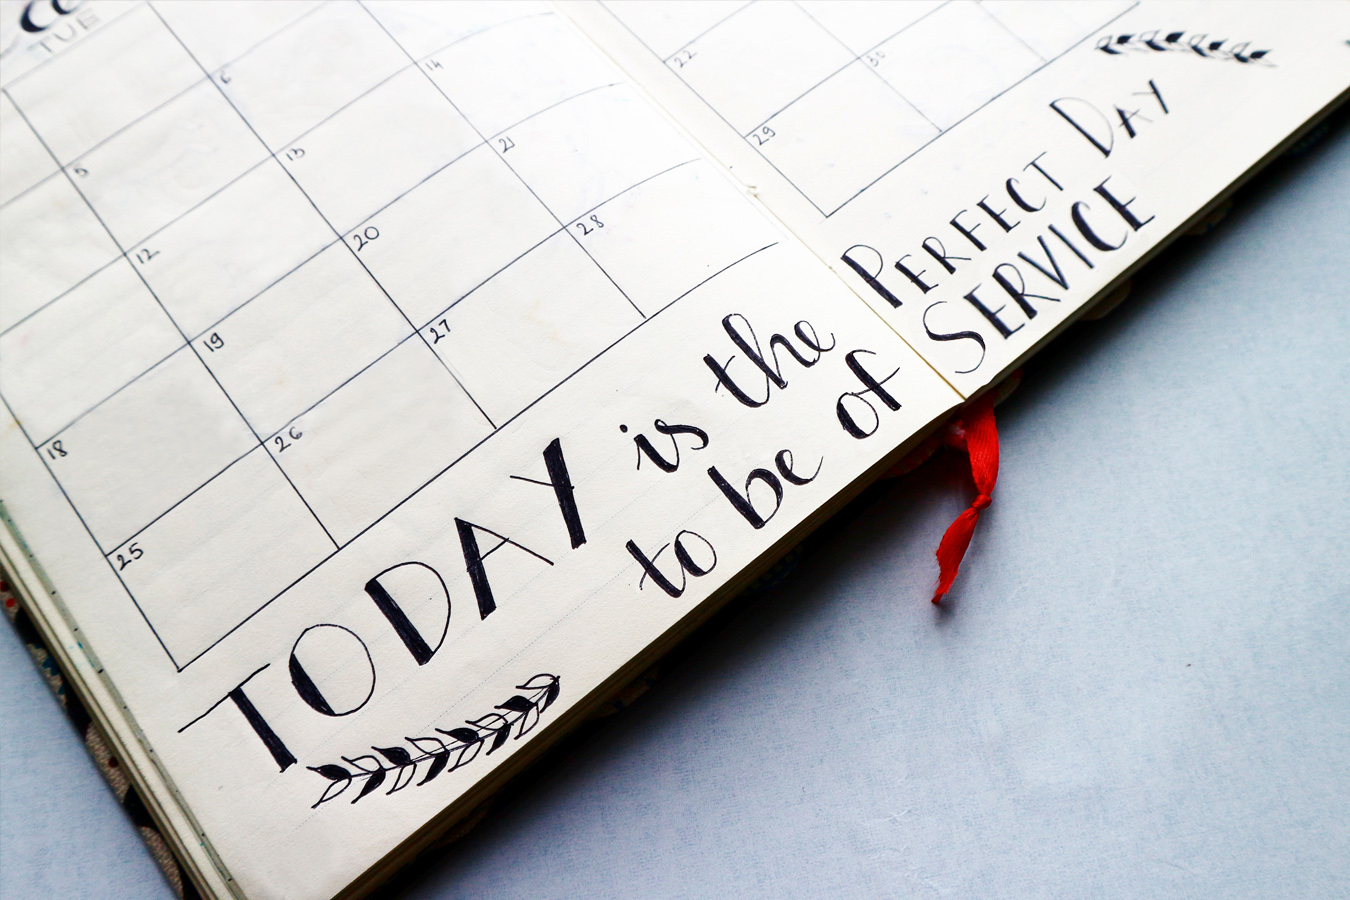 TUE
5 6
12 13 14
18 19 20 21 22
25 26 27 28 29 30
TODAY is the PERFECT DAY
to be of SERVICE